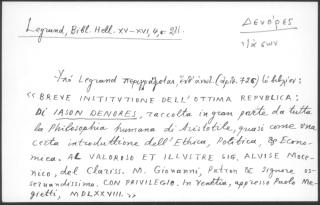 Legrand, Bibl. Hell. XV-XVI, 4, σ 211.
ΔΕΝΟΡΕΣ
Ἰάσων
Ὑπὸ Legrand περιγράφεται, ἔνθ' ἀνωτ. (ἀριθ. 726) ὡς ἑξῆς:
« BREVE INSTITVTIONE DELL'OTTIMA REPVBLICA:
Di IASON DENORES, raccolta in gran parte da tutta
la Philosophia humana di Aristotile, quasi come una
certa introduttione dell'Ethica, Politica, & Econo-
mica. AL VALOROSO ET ILLVSTRE SIG. ALVISE MORE-
NICO, del Clariss. M. Giovanni, PATRON SE signore os-
servandissimo. CON PRIVILEGIO. In Venetia, appresso Paolo Me-
gietti, MDLXXVIII. »